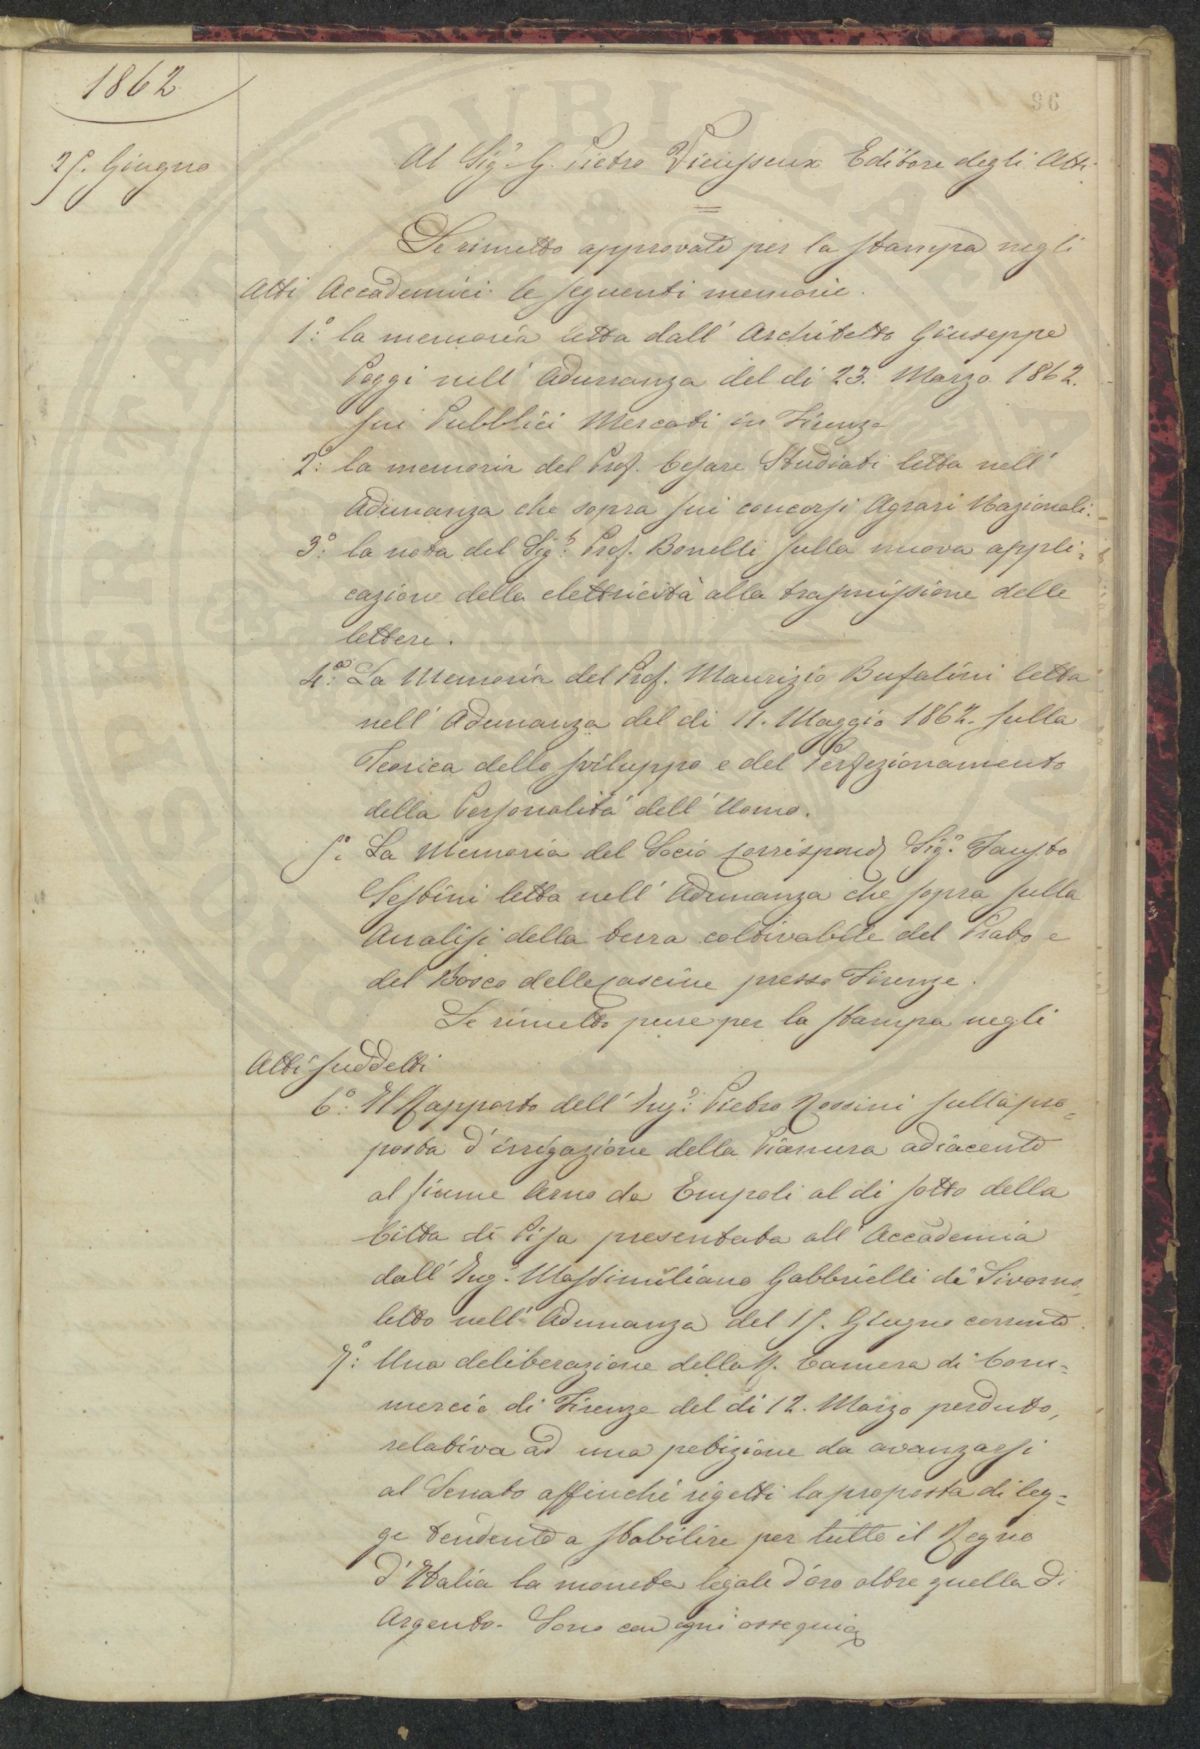 1862
96
25. Giugno
Al Sig. G. Pietro Vieusseux Editore degli Atti.
Le rimetto approvate per la stampa negli
Atti Accademici le seguenti memorie.
1º: la memoria letta dall' Architetto Giuseppe
Poggi nell' Adunanza del dì 23. Marzo 1862.
sui Pubblici Mercati in Firenze
2º: la memoria del Prof. Cesare Studiati letta nell'
Adunanza che sopra sui concorsi Agrari Nazionali.
3º: la nota del Sig.r Prof. Bonelli sulla nuova appli=
cazione della elettricità alla trasmissione delle
lettere.
4º: La Memoria del Prof. Maurizio Bufalini letta
nell' Adunanza del dì 11. Maggio 1862. sulla
Teorica dello sviluppo e del Perfezionamento
della Personalità dell' Uomo.
5º: La Memoria del Socio Corrispond Sig.r Fausto
Sestini letta nell' Adunanza che sopra sulla
Analisi della terra coltivabile del Prato e
del Bosco delle Cascine presso Firenze.
Le rimetto pure per la stampa negli
Atti suddetti
6º: Il Rapporto dell' Ing.e Pietro Rossini sulla pro=
posta d' irrigazione della Pianura adiacente
al fiume Arno da Empoli al di sotto della
Città di Pisa presentata all' Accademia
dall' Ing.e Massimiliano Gabbrielli di Livorno,
letto nell' Adunanza del 15. Giugno corrente.
7º: Una deliberazione della R. Camera di Com=
mercio di Firenze del dì 12. Marzo perduto,
relativa ad una petizione da avanzarsi
al Senato affinchè rigetti la proposta di leg=
ge tendente a stabilire per tutto il Regno
d' Italia la moneta legale d'oro oltre quella di
Argento. Sono con ogni ossequio